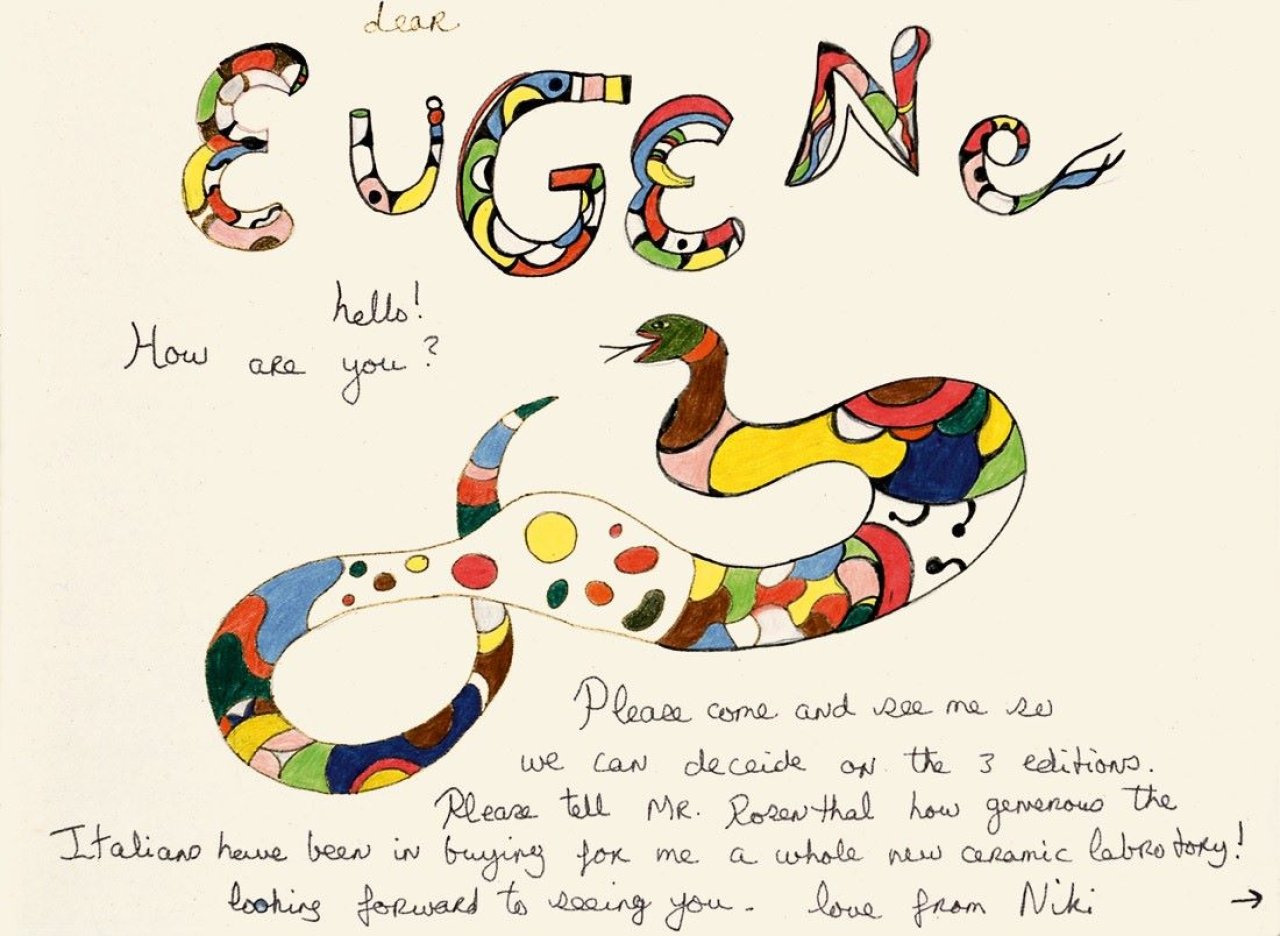 dear
EUGENe
hello!
How are you?
Please come and see me so
we can deceide on the 3 editions.
Please tell MR. Rosenthal how generous the
Italians have been in buying for me a whole new ceramic labrotory!
looking forward to seeing you. love from Niki →